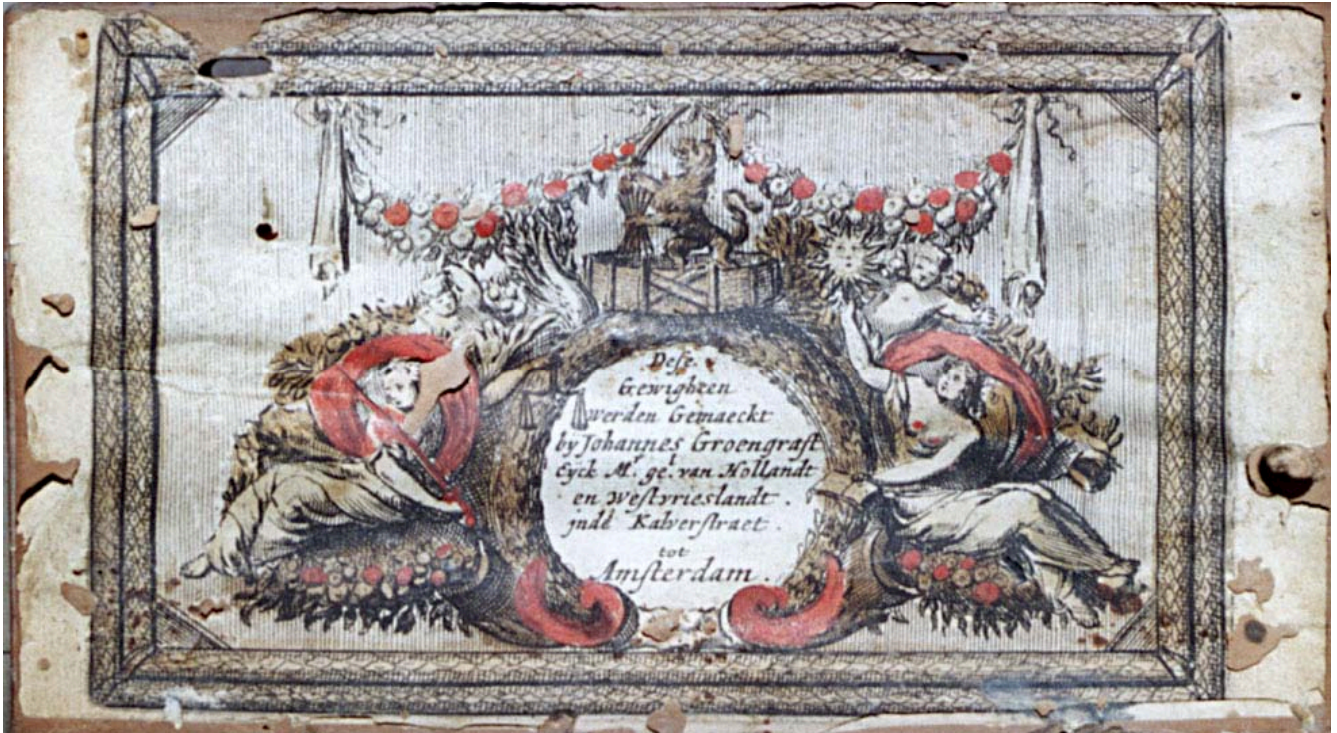 Dese
Gewighten
werden Gemaeckt
by Johannes Groengraft
Eyck Mr. ge. van Hollandt
en Westvrieslandt.
jndd Kalverstraet.
tot
Amsterdam.